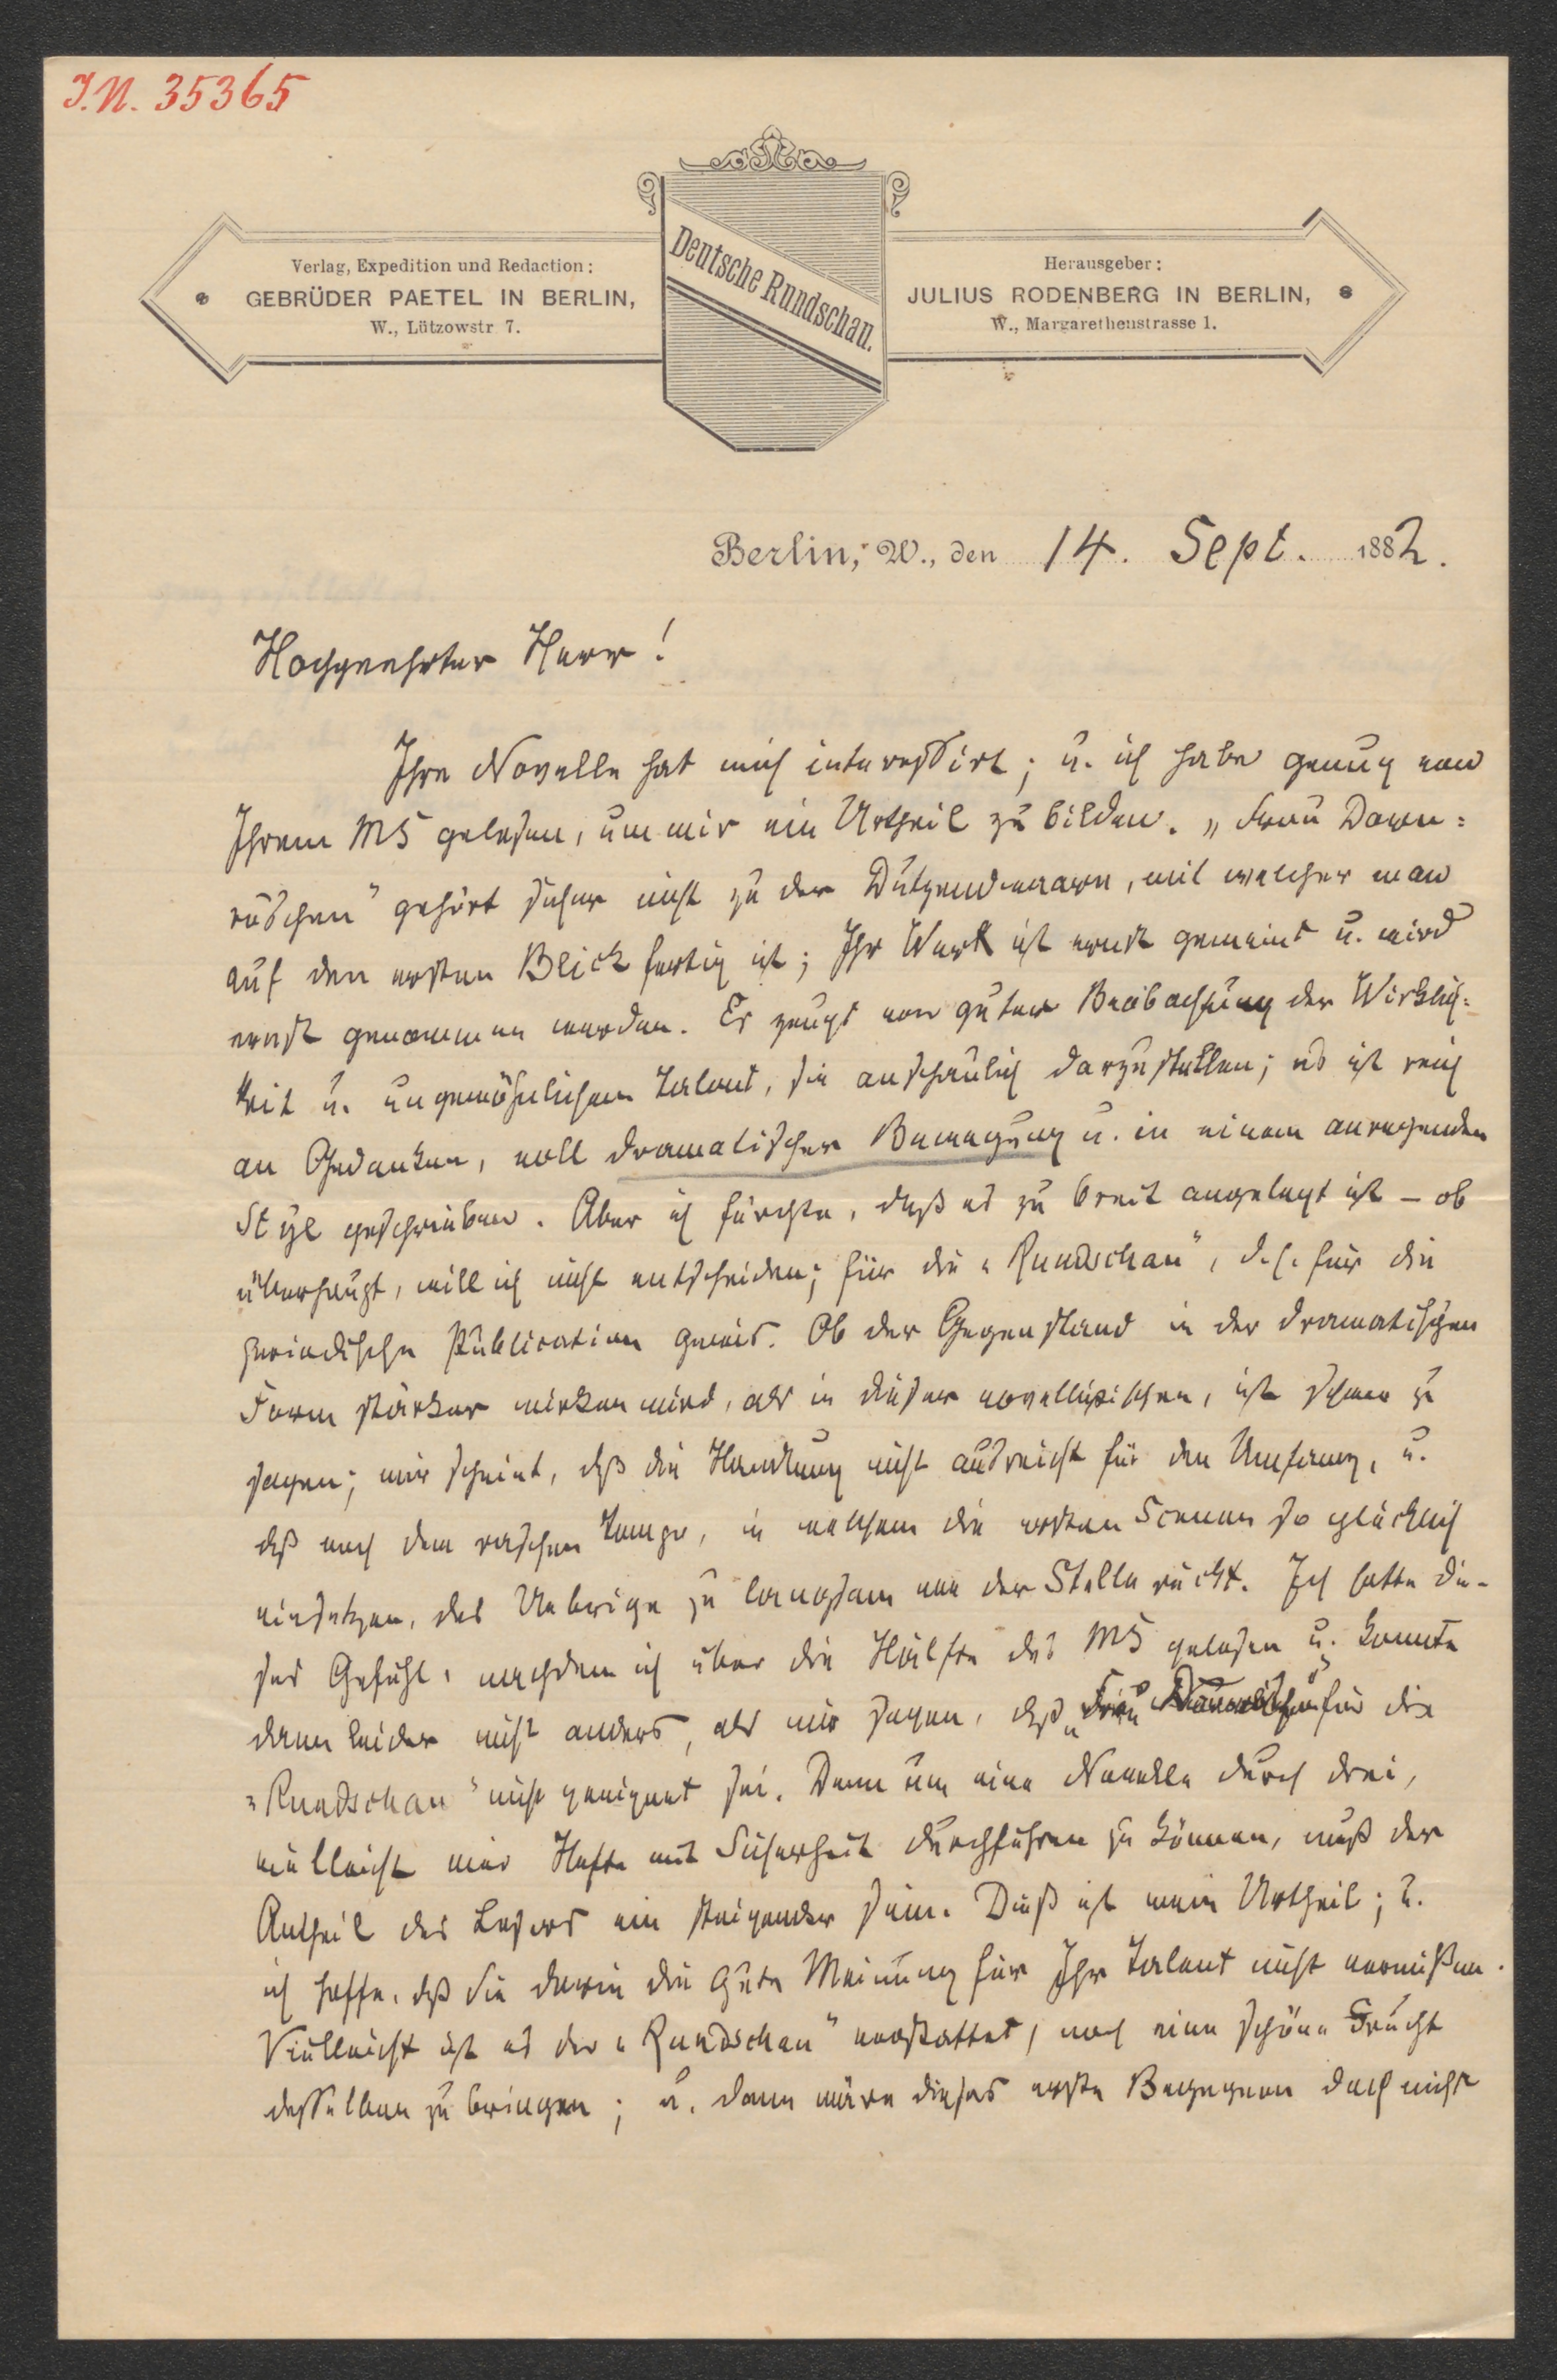 I.N. 35365
Verlag, Expedition und Redaction:
GEBRÜDER PAETEL IN BERLIN,
W., Lützowstr 7.
Deutsche Rundschau.
Herausgeber:
JULIUS RODENBERG IN BERLIN,
W., Margarethenstrasse 1.
Berlin, W., den 14. Sept. 1882.
Hochgeehrter Herr!
Ihre Novelle hat mich interessirt; u. ich habe genug von
Ihrem MS gelesen, um mir ein Urtheil zu bilden. „Frau Dorn=
röschen" gehört sicher nicht zu der Dutzendwaare, mit welcher man
auf den ersten Blick fertig ist; Ihr Werk ist ernst gemeint u. wird
ernst genommen werden. Es zeugt von guter Beobachtung der Wirklich=
keit u. ungewöhnlichem Talent, sie anschaulich darzustellen; es ist reich
an Gedanken, voll dramatischer Bewegung u. in einem anregenden
Styl geschrieben. Aber ich fürchte, daß es zu breit angelegt ist – ob
überhaupt, will ich nicht entscheiden; für die „Rundschau", d.h. für die
periodische Publication gewiß. Ob der Gegenstand in der dramatischen
Form stärker wirken wird, als in dieser novellistischen, ist schwer zu
sagen; mir scheint, daß die Handlung nicht ausreicht für den Umfang, u.
daß nach dem raschen Tempo, in welchem die ersten Scenen so glücklich
einsetzen, das Uebrige zu langsam von der Stelle rückt. Ich hatte die-
ses Gefühl, nachdem ich über die Hälfte des MS gelesen u. konnte
dann leider nicht anders, als mir sagen, daß „Frau Dornröschen" für die
„Rundschau" nicht geeignet sei. Denn um eine Novelle durch drei,
vielleicht vier Hefte mit Sicherheit durchführen zu können, muß der
Antheil des Lesers ein steigender sein. Dieß ist mein Urtheil; u.
ich hoffe, daß Sie darin die gute Meinung für Ihr Talent nicht vermißen.
Vielleicht ist es der „Rundschau" verstattet, noch eine schöne Frucht
desselben zu bringen; u. dann wäre dieses erste Begegnen doch nicht